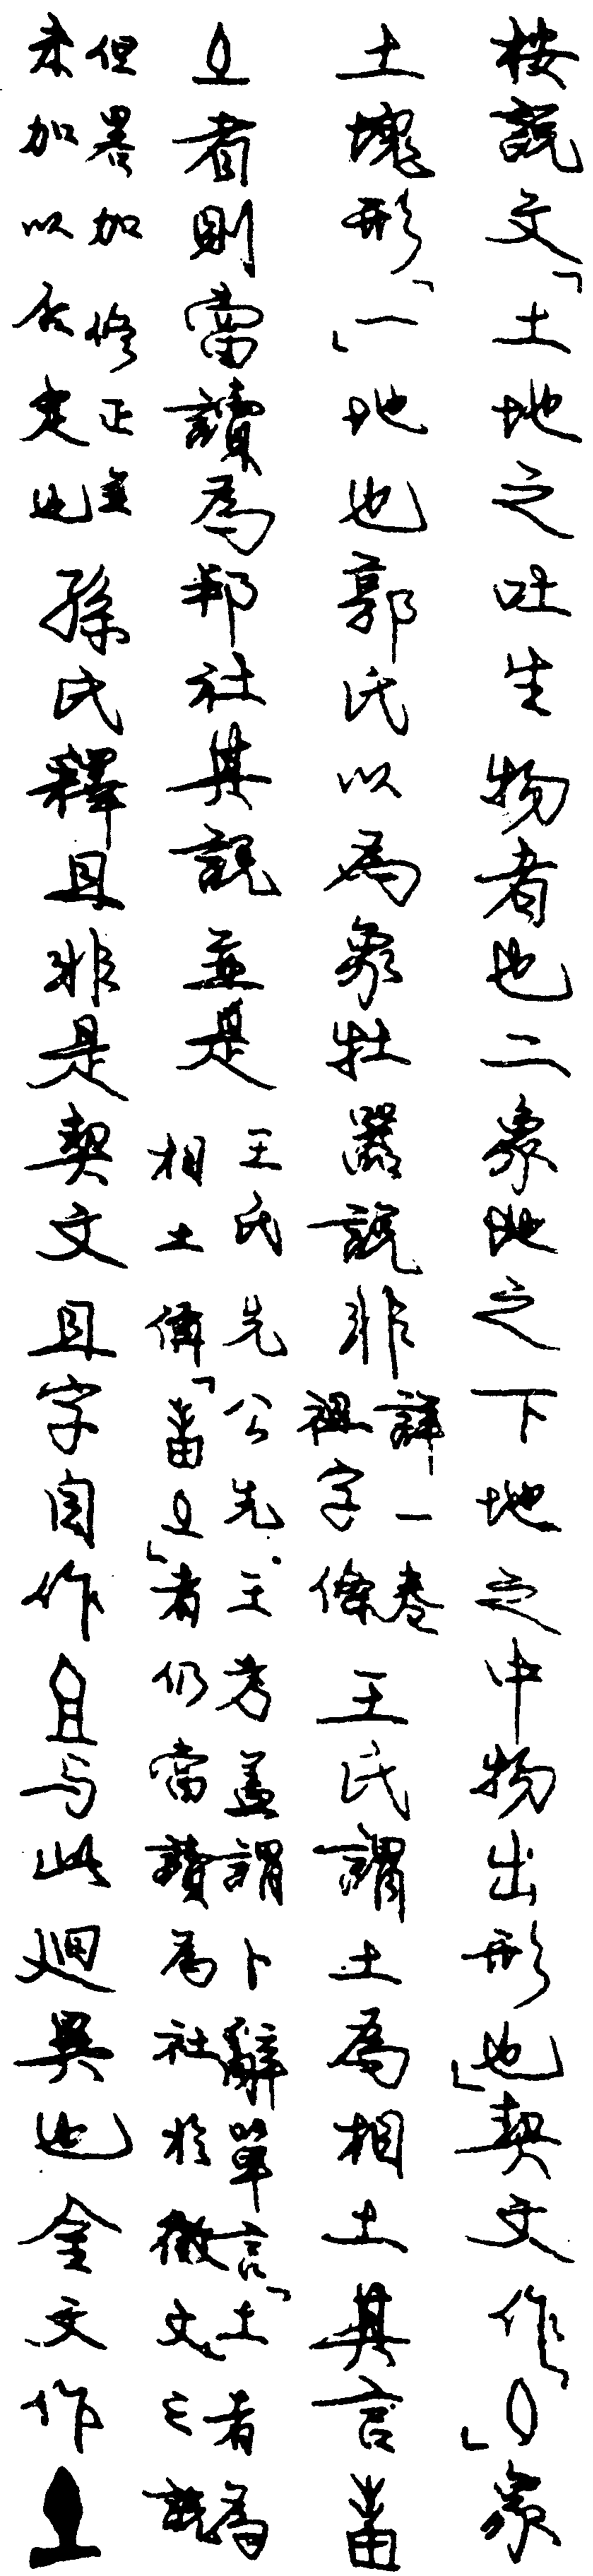 按說文「土地之吐生物者也二象地之下地之中物出形也」契文作「」象
土塊形「一」地也郭氏以為象牡器說非詳一卷祖字條王氏謂土為相土其言
者則當讀為邦社其說並是王氏先公先王考蓋謂卜辭單言「土」者為相土偁「」者仍當讀為社於徵文之說
但畧加修正並未加以否定也孫氏釋且非是契文且字自作與此迥異也金文作